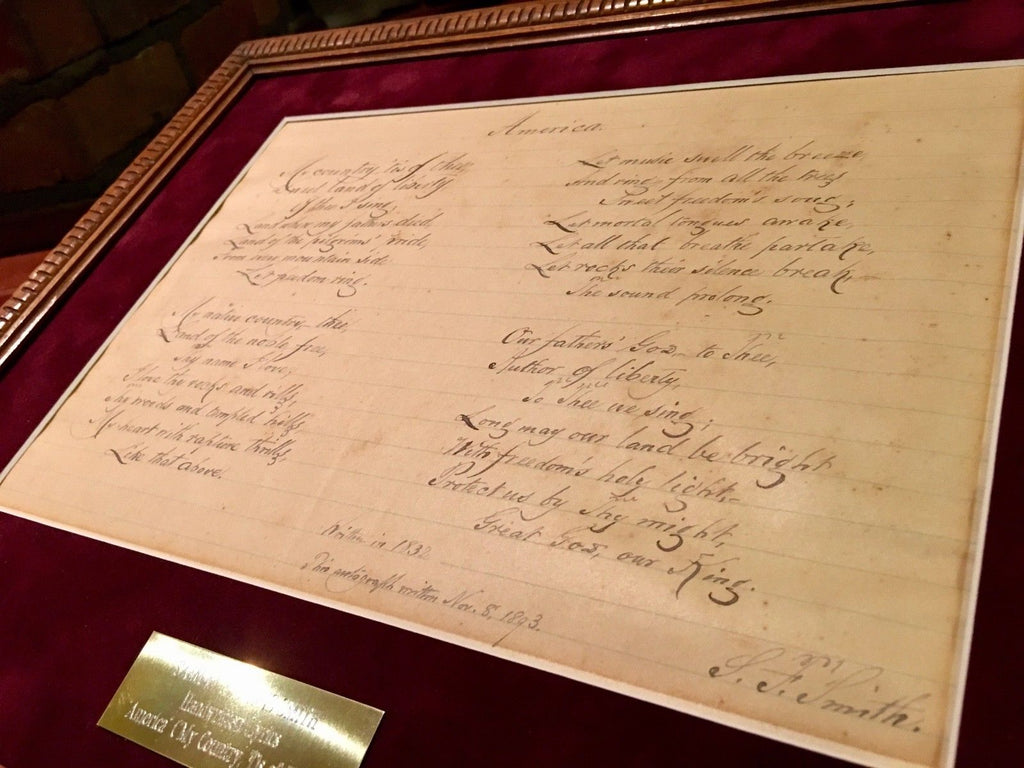 America.
My country, 'tis of thee,
Sweet land of liberty
Of thee I sing,
Land where my fathers died,
Land of the pilgrims' pride,
From every mountain side
Let freedom ring.
My native country, thee,
Land of the noble free,
Thy name I love;
I love thy rocks and rills,
Thy woods and templed hills,
My heart with rapture thrills,
Like that above.
Let music swell the breeze,
And ring from all the trees
Sweet freedom's song;
Let mortal tongues awake,
Let all that breathe partake,
Let rocks their silence break,
The sound prolong.
Our fathers' God, to Thee,
Author of liberty,
To Thee we sing;
Long may our land be bright
With freedom's holy light,
Protect us by Thy might,
Great God, our King.
Written in 1832
This autograph written Nov. 8, 1893.
S. F. Smith.
Handwritten Lyrics
America' (My Country, 'Tis of